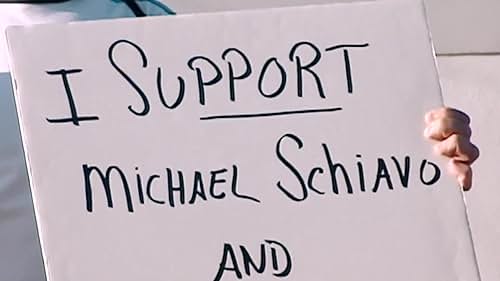 I SUPPORT
MiCHAEL SchiAVO
AND